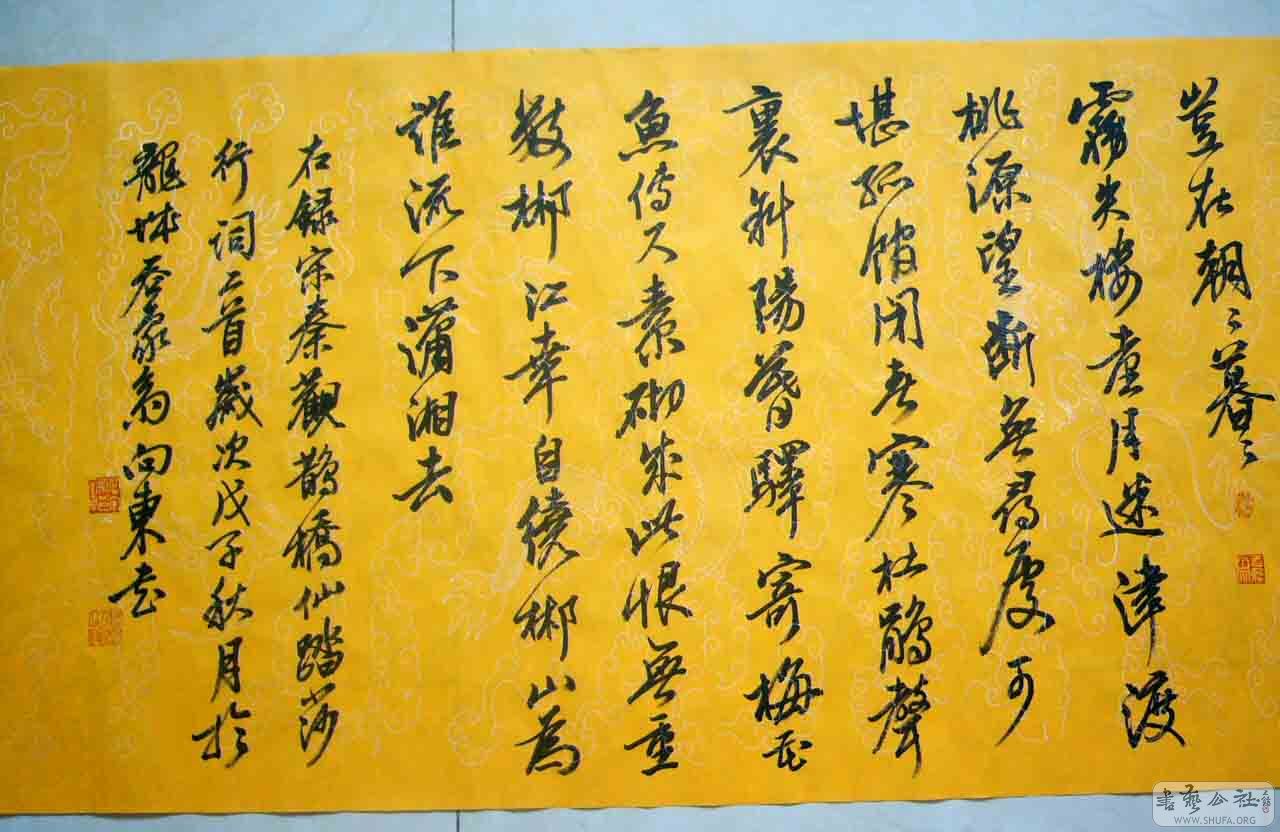 豈在朝〻暮〻
霧失樓臺月迷津渡
桃源望斷無尋處可
堪孤館閉春寒杜鵑聲
裏斜陽暮驛寄梅花
魚傳尺素砌成此恨無重
數郴江幸自繞郴山為
誰流下瀟湘去
右錄宋秦觀鵲橋仙踏莎
行詞二首歲次戊子秋月於
龍城向東書
書藝公社
WWW.SHUFA.ORG